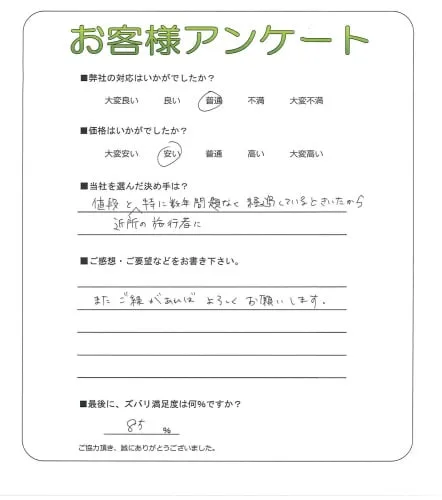 お客様アンケート
■弊社の対応はいかがでしたか?
大変良い 良い 普通 不満 大変不満
■価格はいかがでしたか?
大変安い 安い 普通 高い 大変高い
■当社を選んだ決め手は?
値段と、特に数年問題なく経過しているときいたから
近所の施行者に
■ご感想・ご要望などをお書き下さい。
またご縁があればよろしくお願いします。
■最後に、ズバリ満足度は何%ですか?
85 %
ご協力頂き、誠にありがとうございました。